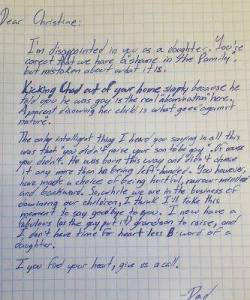 Dear Christine:
I'm disappointed in you as a daughter. You're
correct that we have a "shame in the family,
but mistaken about what it is.
Kicking Chad out of your home simply because he
told you he was gay is the real "abomination" here.
A parent disowning her child is what goes against
nature.
The only intelligent thing I heard you saying in all this
was that "you didn't raise your son to be gay". Of course
you didn't. He was born this way and didn't choose
it any more than he being left-handed. You however,
have made a choice of being hurtful, narrow-minded
and backward. So, while we are in the business of
disowning our children, I think I'll take this
moment to say goodbye to you. I now have a
fabulous (as the gay put it) grandson to raise, and
I don't have time for heart-less B-word of a
daughter.
If you find your heart, give us a call.
Dad